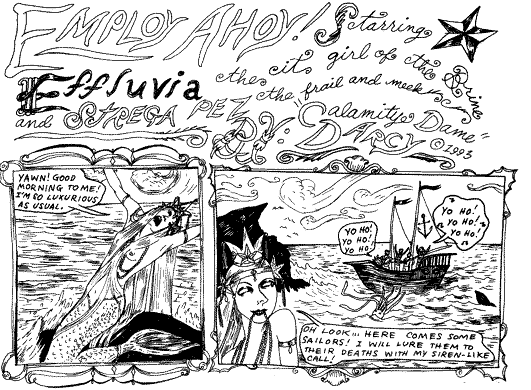 EMPLOY AHOY! Starring
Effluvia the it girl of the Brine
and STREGA PEZ the frail and meek
BY: "Calamity Dame"
DARCY ©1993
YAWN! GOOD
MORNING TO ME!
I'M SO LUXURIOUS
AS USUAL.
YO HO!
YO HO!
YO HO!
YO HO!
YO HO!
YO HO!
OH LOOK... HERE COMES SOME
SAILORS! I WILL LURE THEM TO
THEIR DEATHS WITH MY SIREN-LIKE
CALL!